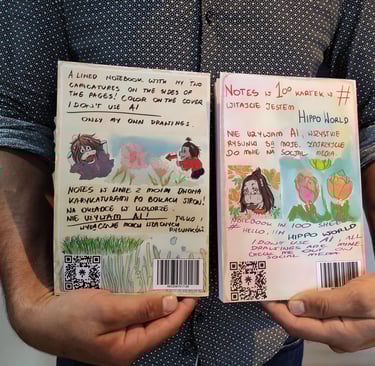 A LINED NOTEBOOK WITH MY TWO
CARICATURES ON THE SIDES OF
THE PAGES! COLOR ON THE COVER
I DON'T USE AI
ONLY MY OWN DRAWINGS.
NOTES W LINIE Z MOIMI DWOMA
KARYKATURAMI PO BOKACH STRON!
NA OKŁADCE W KOLORZE.
NIE UŻYWAM AI! TYLKO I
WYŁĄCZNIE MOICH WŁASNYCH
RYSUNKÓW
NOTES W 100 KARTEK W #
WITAJCIE JESTEM
HIPPO WORLD
NIE UŻYWAM AI, WSZYSTKIE
RYSUNKI SĄ MOJE. ZAJRZYJCIE
DO MNIE NA SOCIAL MEDIA.
NOTEBOOK IN 100 SHEE
# HELLO, I'M HIPPO WORLD
I DON'T USE AI ALL
DRAWINGS ARE MINE
CHECK ME OUT
SOCIAL MEDIA